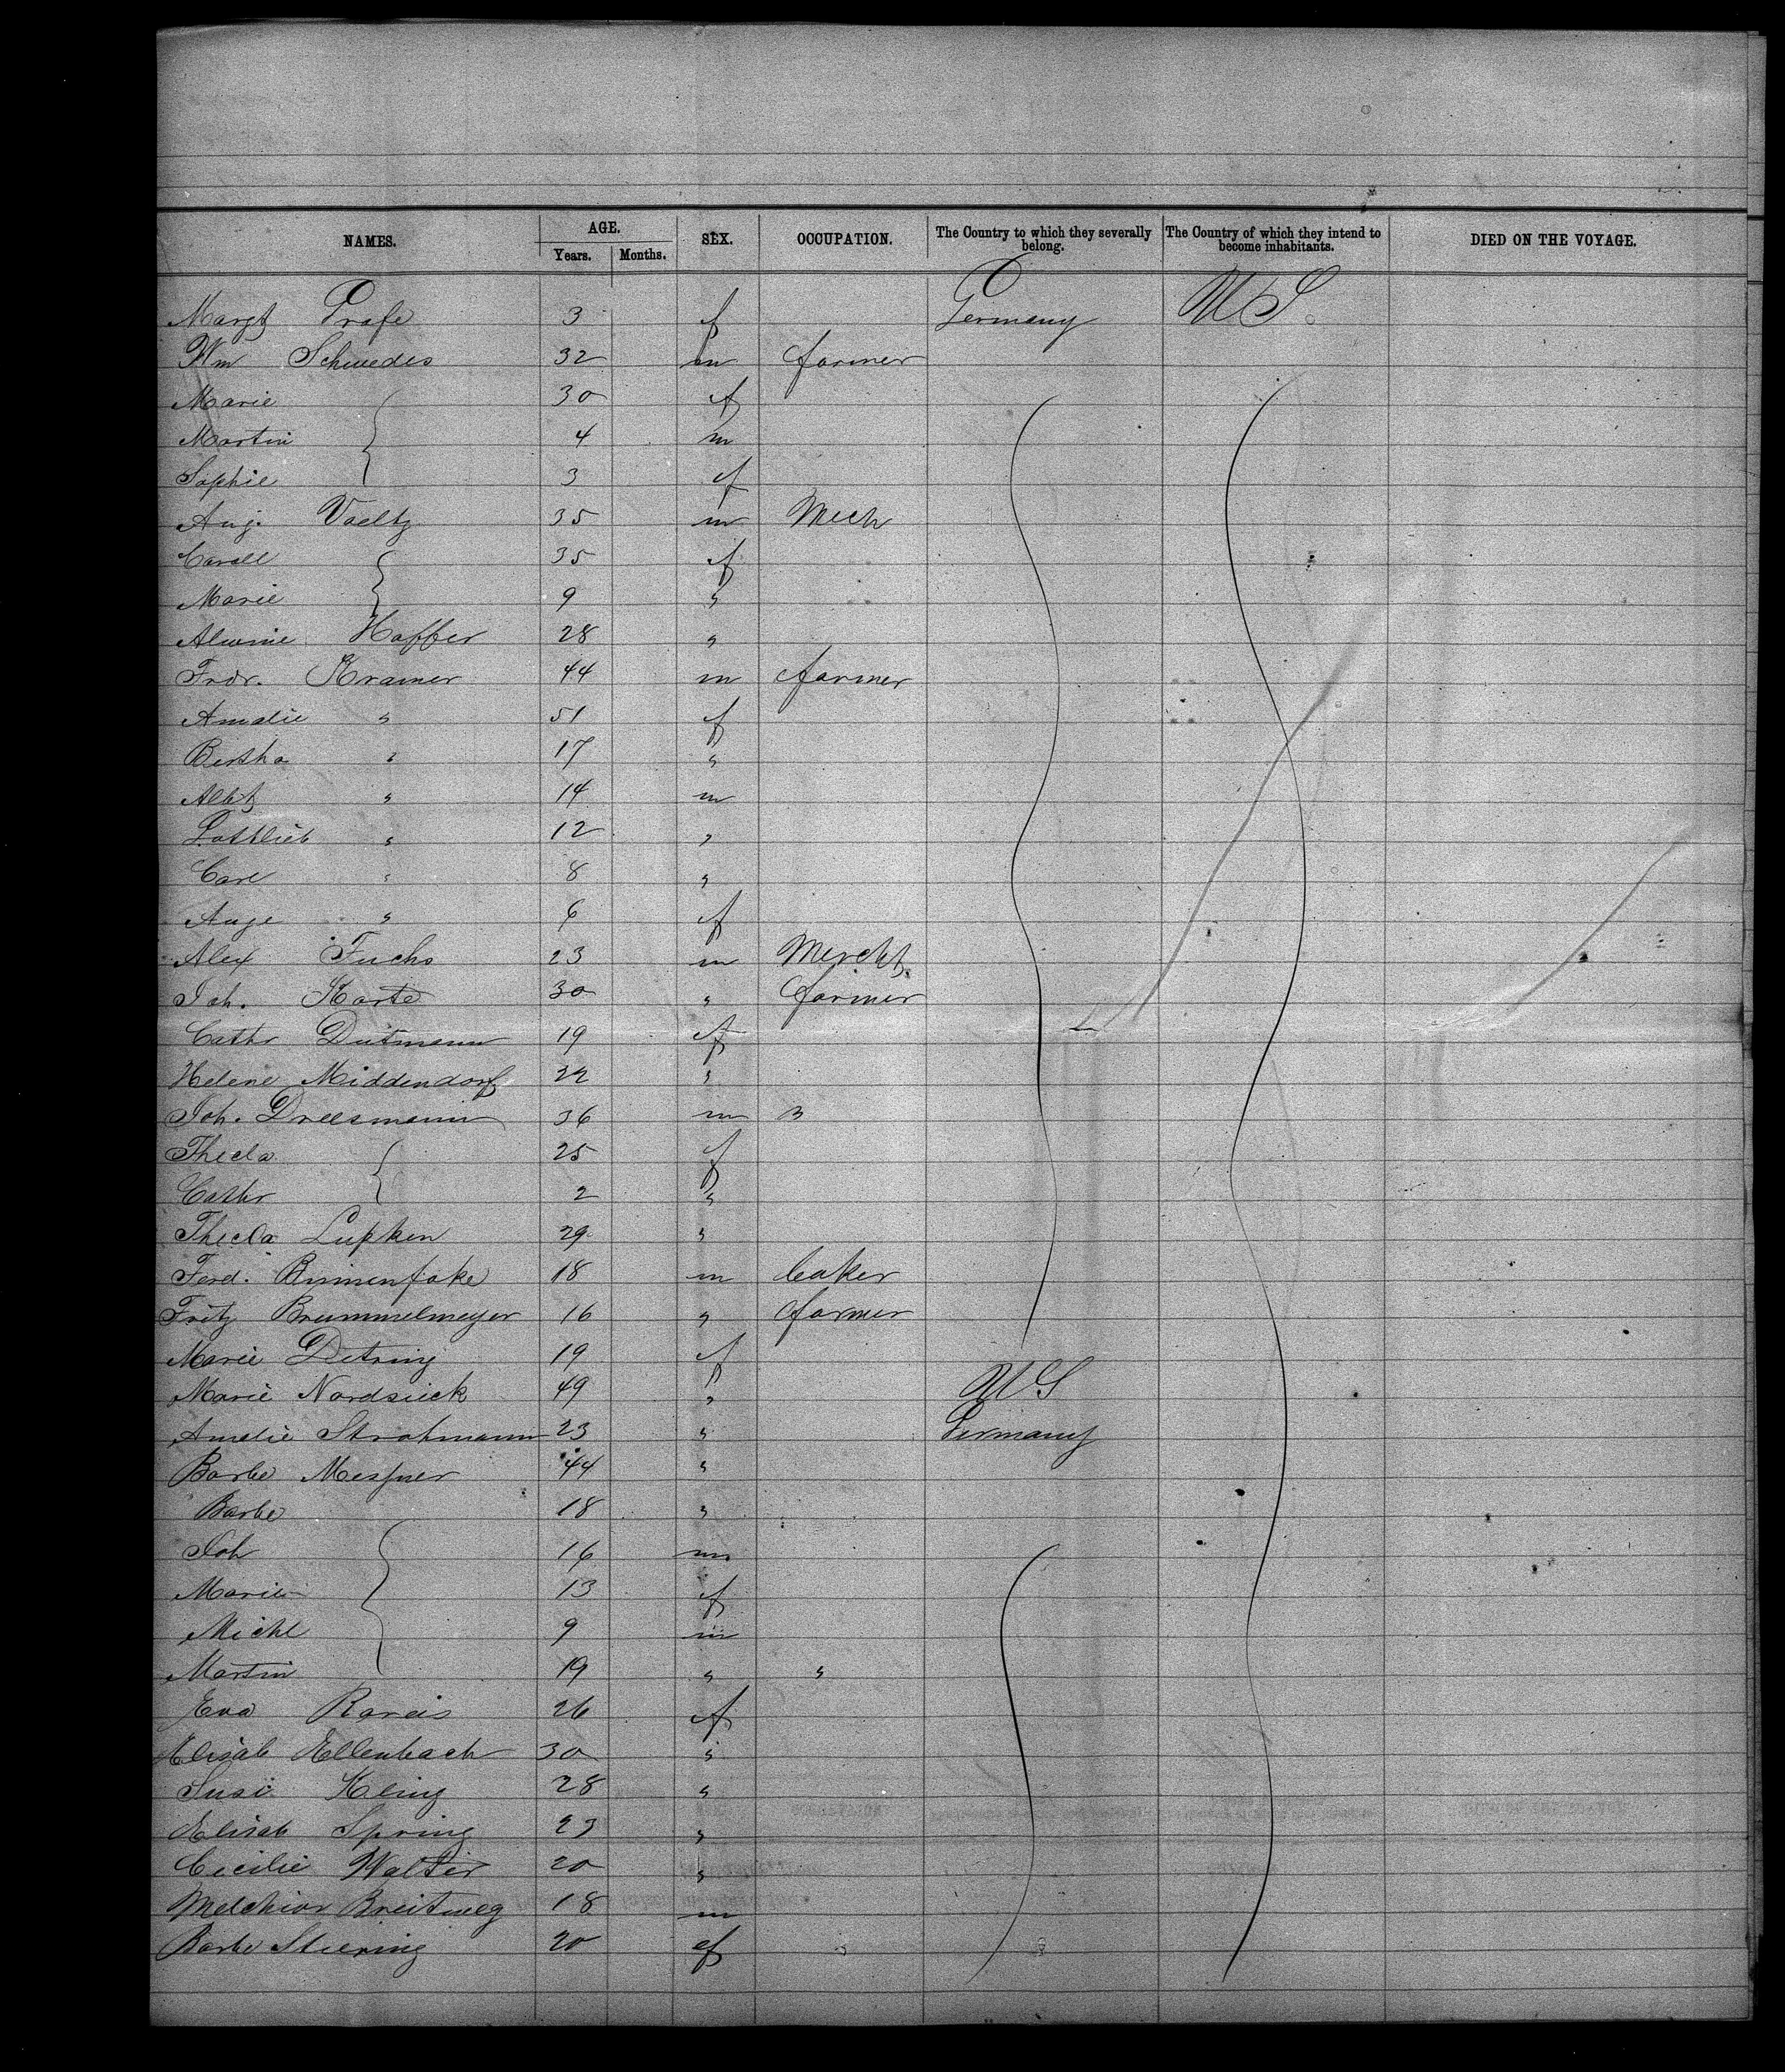 NAMES. AGE. SEX. OCCUPATION. The Country to which they severally belong. The Country of which they intend to become inhabitants. DIED ON THE VOYAGE.
Years. Months.
Margt Grafe 3 f Germany U S
Wm Schwedes 32 m farmer
Marie 30 f
Martin 4 m
Sophie 3 f
Aug. Voeltz 35 m Mech
Caroll 35 f
Marie 9 "
Alwine Hoffer 28 "
Frdr. Kramer 44 m farmer
Amalie " 51 f
Bertha " 17 "
Albt " 14 m
Gottlieb " 12 "
Carl " 8 "
Auge " 6 f
Alex Fuchs 23 m Mercht.
Joh. Korte 30 " farmer
Cathr Dutmann 19 f
Helene Middendorf 22 "
Joh. Dreesmann 36 m "
Thecla 25 f
Cathr 2 "
Thecla Lupken 29 "
Ferd. 18 m baker
Fritz Brummelmeyer 16 " farmer
Marie Detring 19 f
Marie Nordsieck 49 " U S
Amalie Strohmann 23 " Germany
Barbe Messner 44 "
Barbe 18 "
Joh 16 m
Marie 13 f
Michl 9 m
Martin 19 " "
Eva 26 f
Elisab Ellenbach 30 "
Susi Kling 28 "
Elisab Spring 23 "
Cecilie Walter 20 "
Melchior Breitweg 18 m
Barbe Stiering 20 f